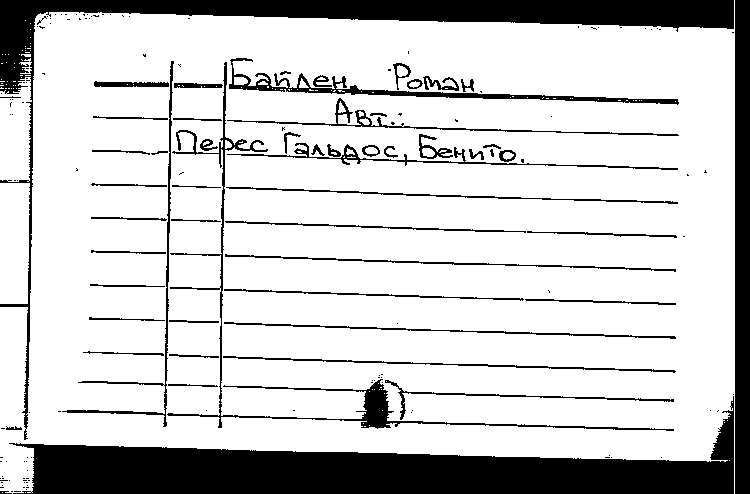 Байлен. Роман.
Авт.:
Перес Гальдос, Бенито.